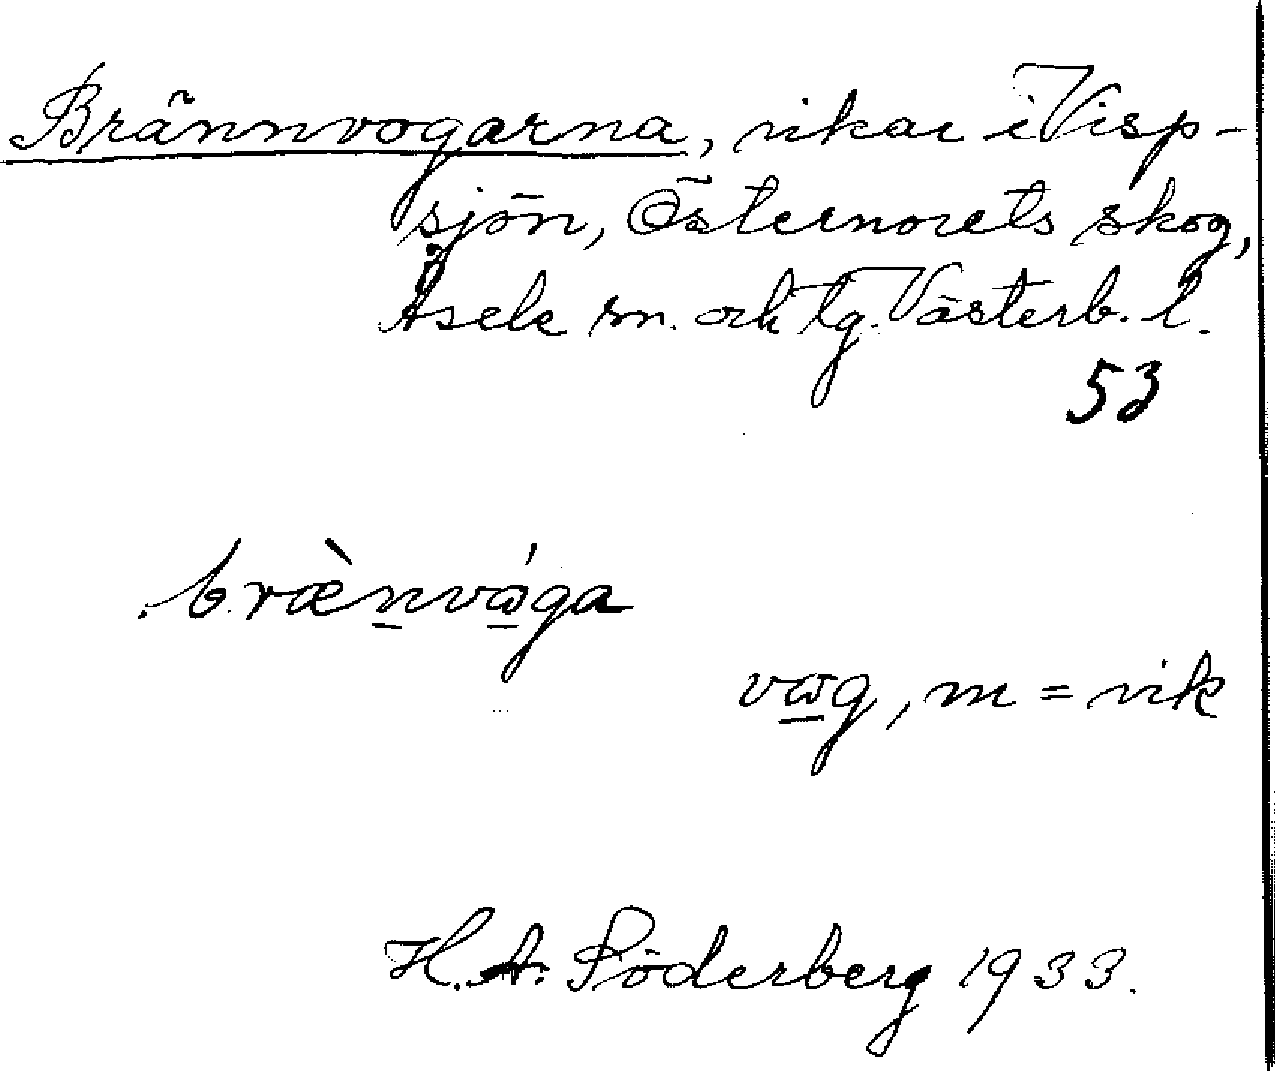 Brännvogarna, vikar i Visp-
sjön, Östernorets skog,
Åsele sn. och tg. Västerb. l.
53
brænvåga
vɷg, m = vik
H. A. Söderberg 1933.